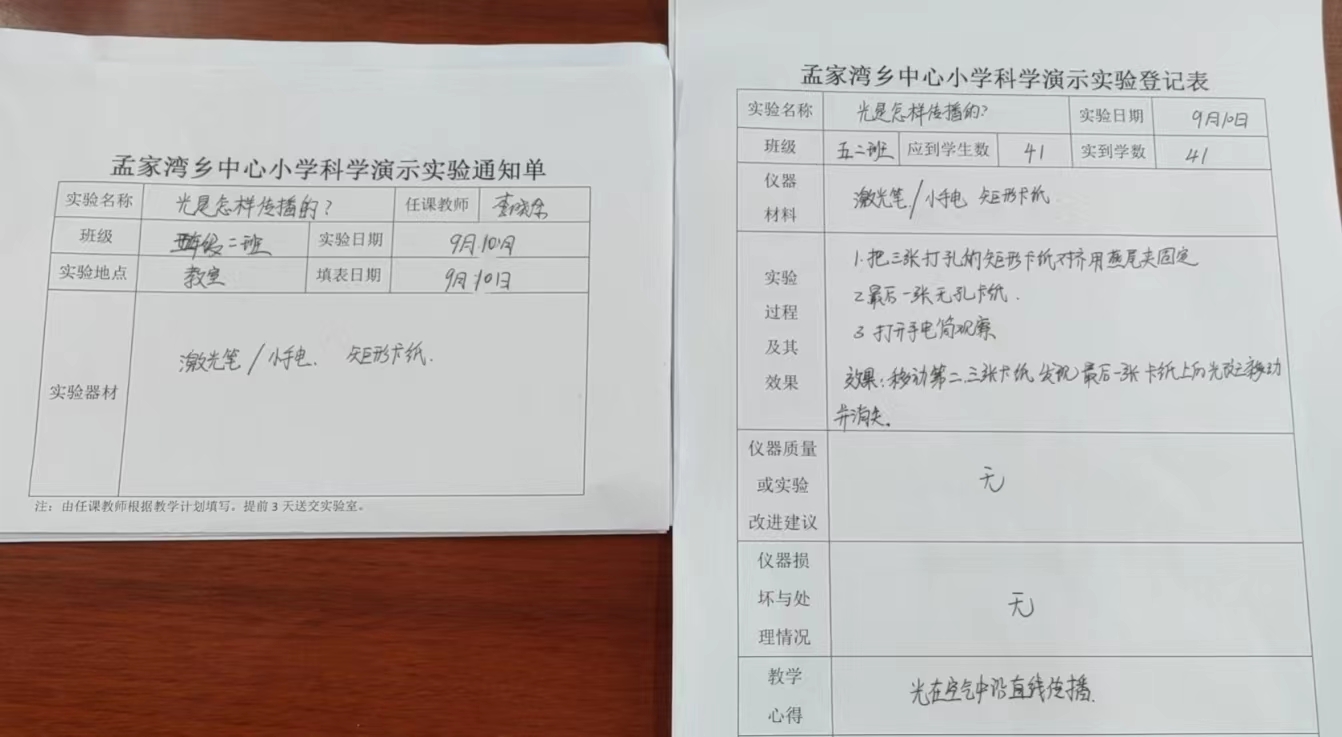 孟家湾乡中心小学科学演示实验通知单
实验名称 光是怎样传播的? 任课教师
班级 五年级二班 实验日期 9月10日
实验地点 教室 填表日期 9月10日
实验器材 激光笔/小手电、矩形卡纸.
注:由任课教师根据教学计划填写,提前3天送交实验室。
孟家湾乡中心小学科学演示实验登记表
实验名称 光是怎样传播的? 实验日期 9月10日
班级 五二班 应到学生数 41 实到学数 41
仪器
材料
激光笔/小手电 矩形卡纸
实验
过程
及其
效果
1.把三张打孔的矩形卡纸对齐用燕尾夹固定
2.最后一张无孔卡纸.
3 打开手电筒观察
效果:移动第二、三张卡纸,发现最后一张卡纸上的光斑移动
并消失。
仪器质量
或实验
改进建议
无
仪器损
坏与处
理情况
无
教学
心得
光在空气中沿直线传播.